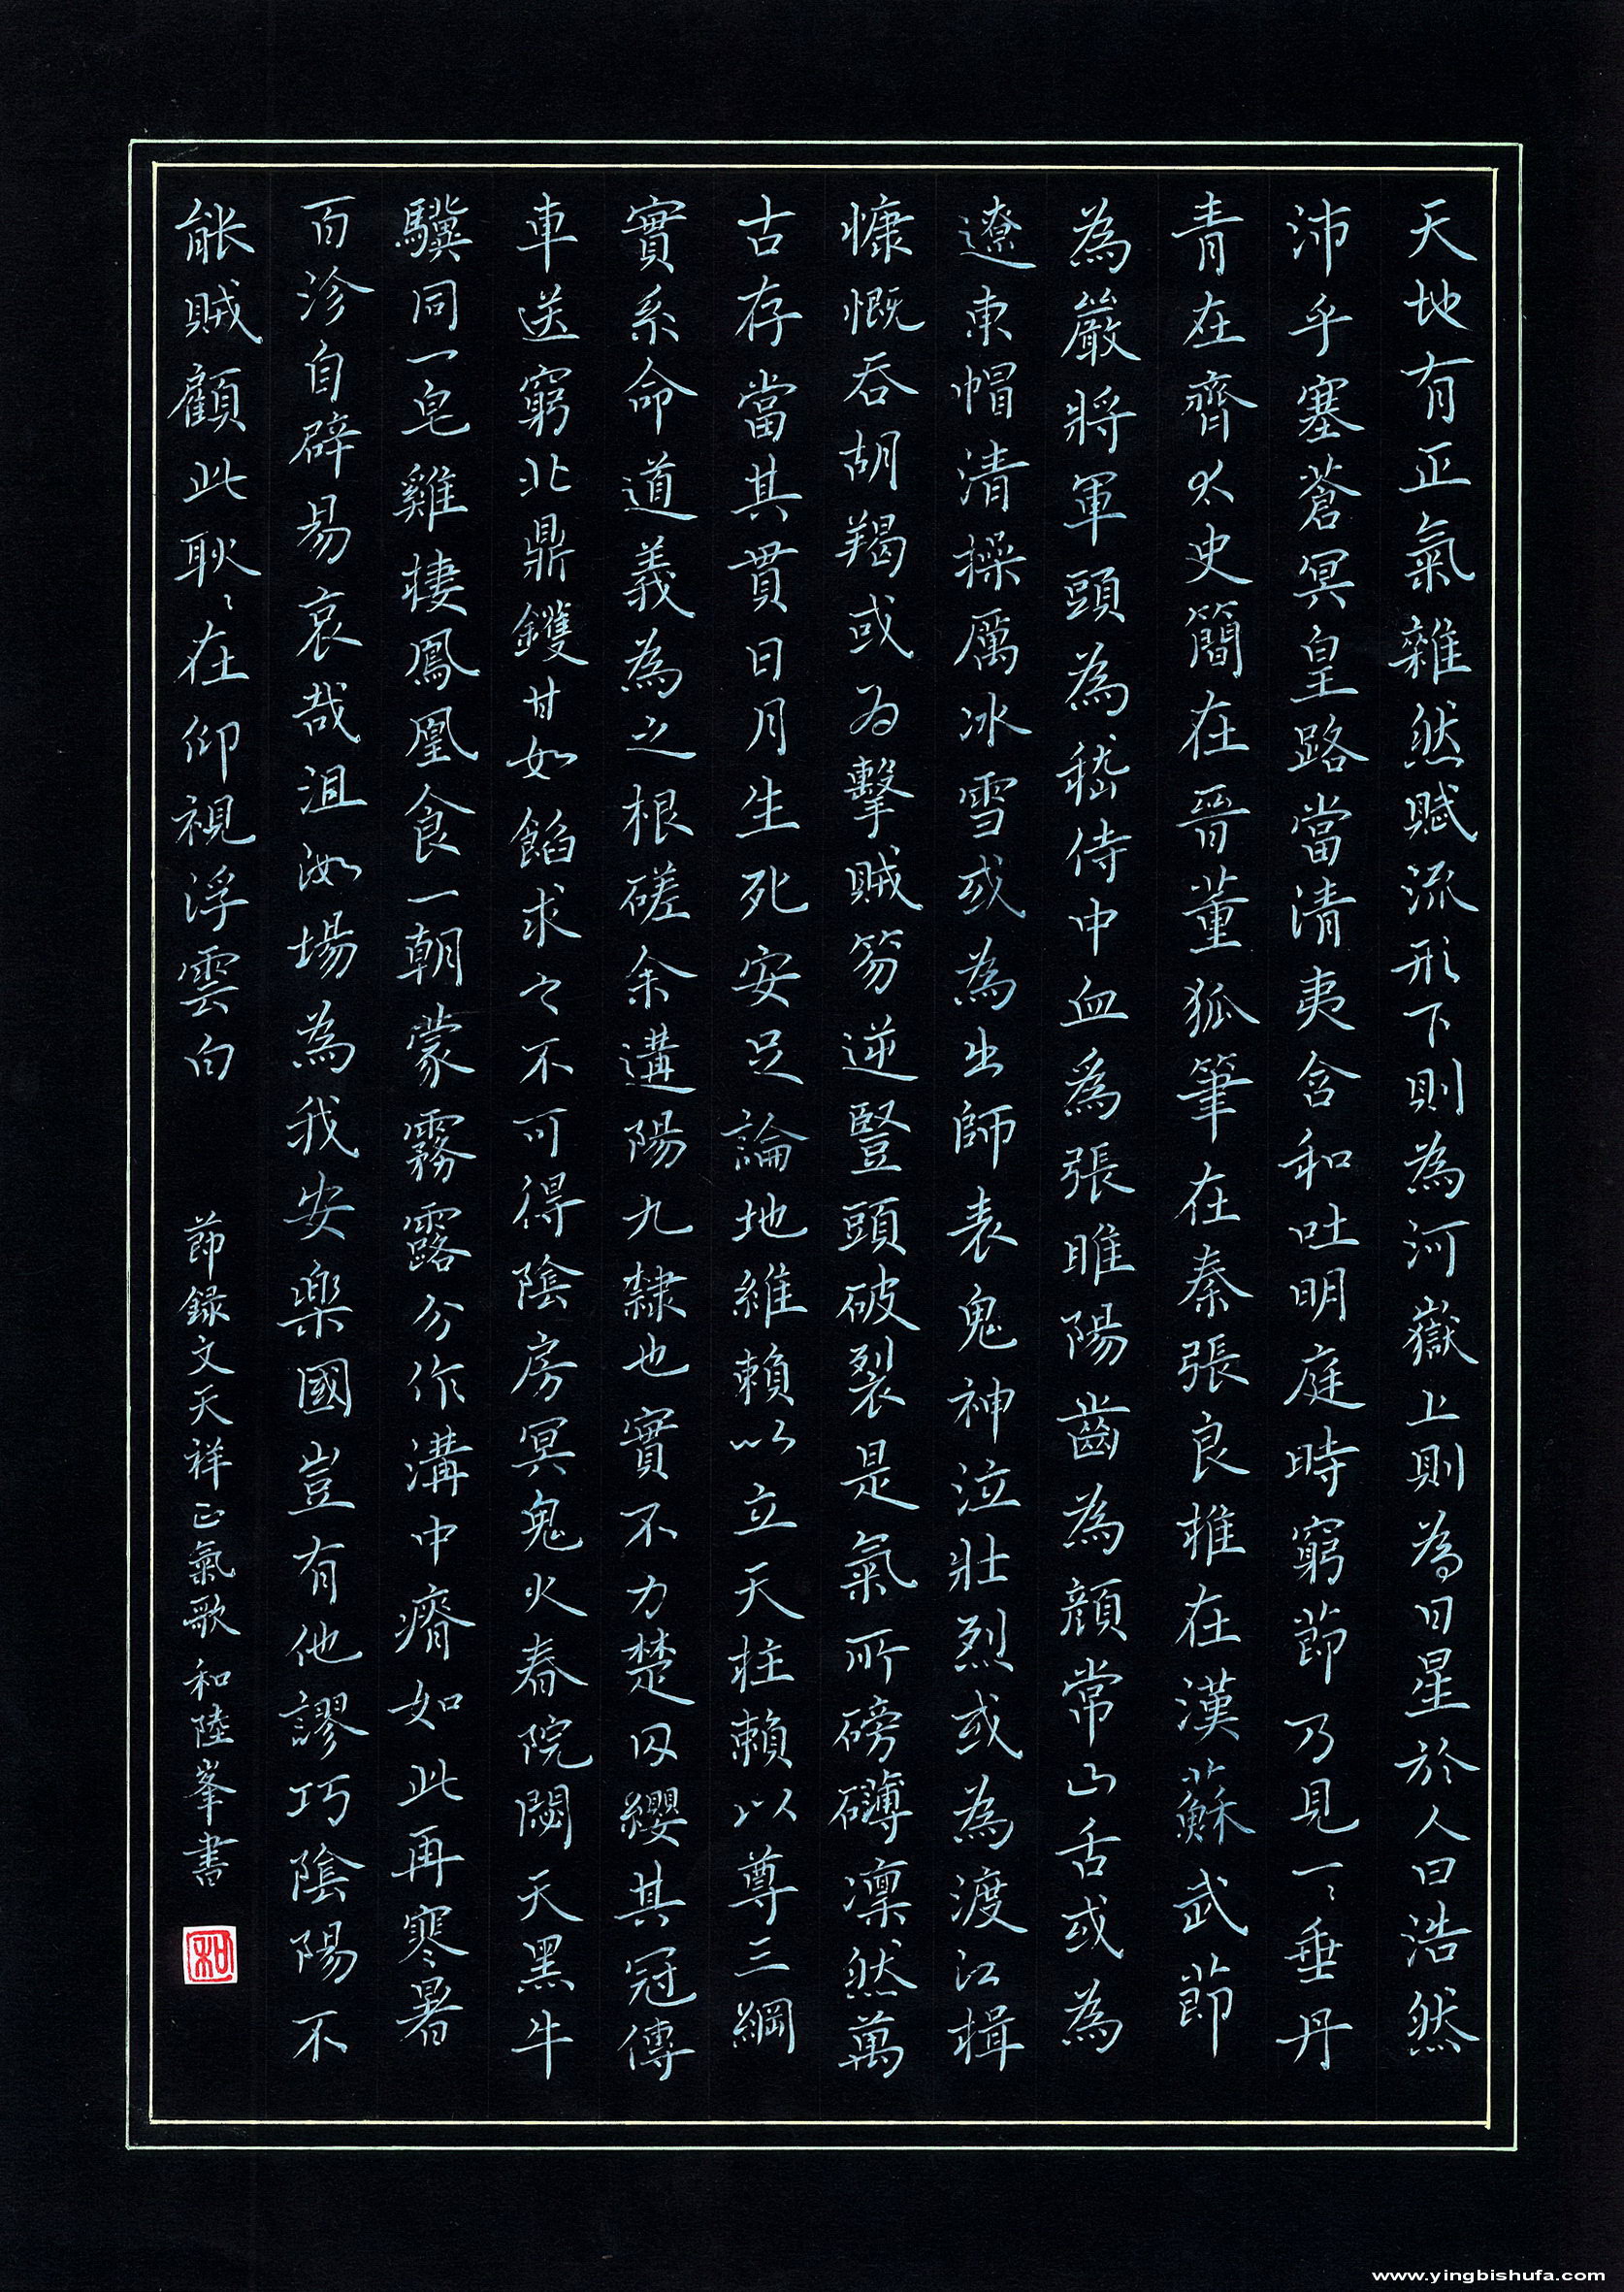 天地有正氣雜然賦流形下則為河嶽上則為日星於人曰浩然
沛乎塞蒼冥皇路當清夷含和吐明庭時窮節乃見一〻垂丹
青在齊太史簡在晉董狐筆在秦張良椎在漢蘇武節
為嚴將軍頭為嵇侍中血為張睢陽齒為顏常山舌或為
遼東帽清操厲冰雪或為出師表鬼神泣壯烈或為渡江楫
慷慨吞胡羯或為擊賊笏逆豎頭破裂是氣所磅礴凜然萬
古存當其貫日月生死安足論地維賴以立天柱賴以尊三綱
實系命道義為之根磋余遘陽九隸也實不力楚囚纓其冠傳
車送窮北鼎鑊甘如餡求之不可得陰房冥鬼火春院閟天黑牛
驥同一皂雞棲鳳凰食一朝蒙霧露分作溝中瘠如此再寒暑
百沴自辟易哀哉沮汝場為我安樂國豈有他謬巧陰陽不
能賊顧此耿〻在仰視浮雲白
節録文天祥正氣歌和陸峯書
和
www.yingbishufa.com